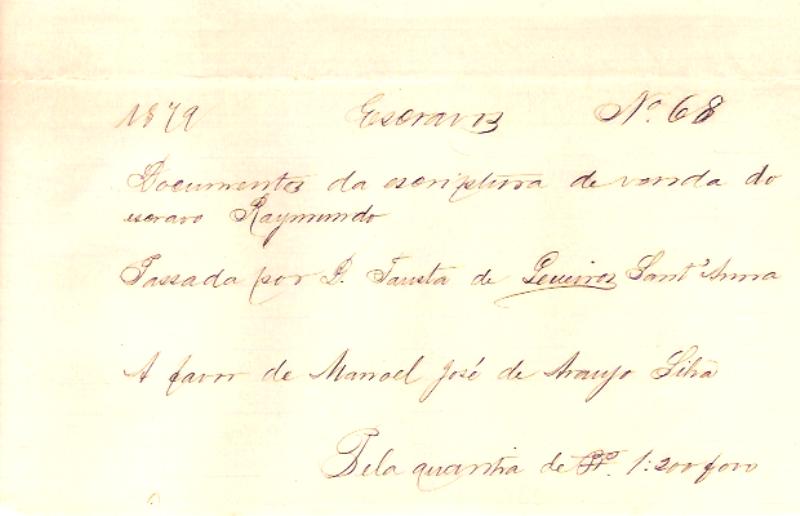 1879 Escravos Nº 68
Documentos da escriptura de venda do
escravo Raymundo
Passada por D. Fausta de Queiroz Sant'Anna
A favor de Manoel José de Araujo Silva
Pela quantia de Rs. 1:200$000